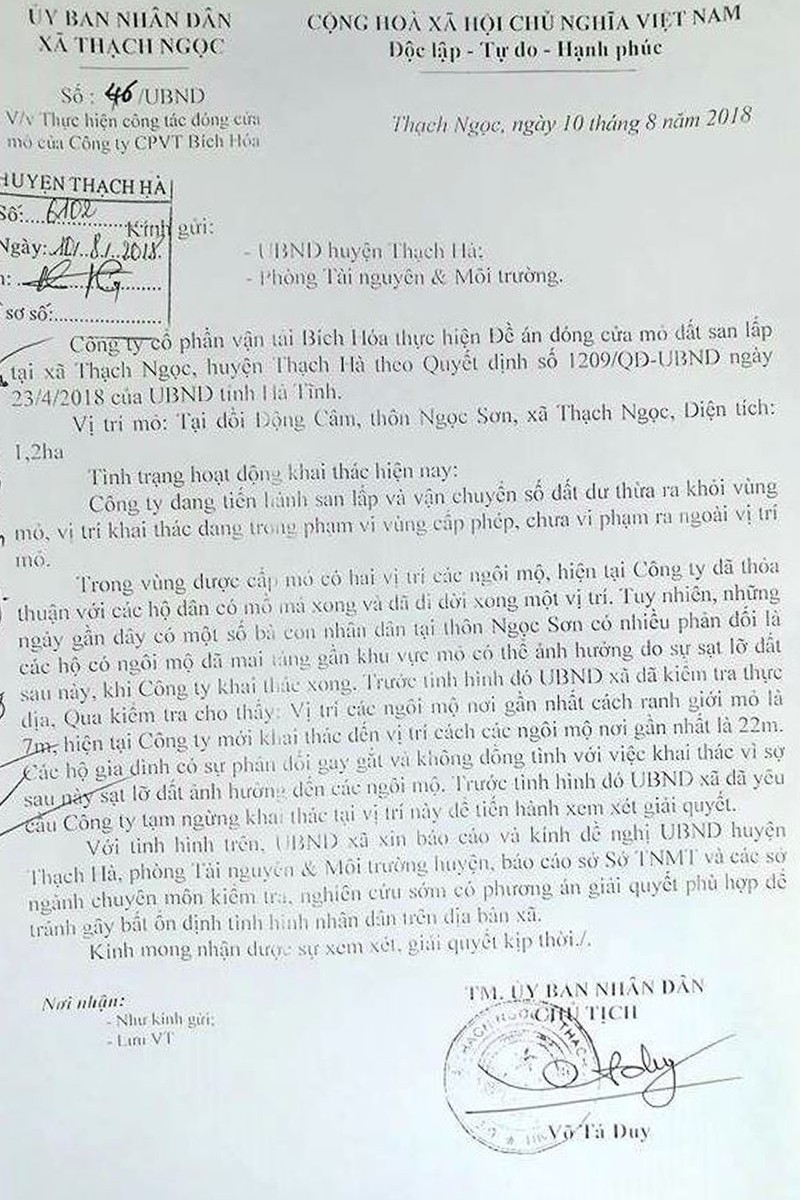 ỦY BAN NHÂN DÂN
XÃ THẠCH NGỌC
CỘNG HOÀ XÃ HỘI CHỦ NGHĨA VIỆT NAM
Độc lập - Tự do - Hạnh phúc
Số : 46 /UBND
V/v Thực hiện công tác đóng cửa
mỏ của Công ty CPVT Bích Hóa
Thạch Ngọc, ngày 10 tháng 8 năm 2018
HUYỆN THẠCH HÀ
Số:....6102
Ngày: 10/.8./.2018.
sơ số:
Kính gửi:
- UBND huyện Thạch Hà;
- Phòng Tài nguyên & Môi trường.
Công ty cổ phần vận tải Bích Hóa thực hiện Đề án đóng cửa mỏ đất san lấp
tại xã Thạch Ngọc, huyện Thạch Hà theo Quyết định số 1209/QĐ-UBND ngày
23/4/2018 của UBND tỉnh Hà Tĩnh.
Vị trí mỏ: Tại đồi Động Câm, thôn Ngọc Sơn, xã Thạch Ngọc, Diện tích:
1,2ha
Tình trạng hoạt động khai thác hiện nay:
Công ty đang tiến hành san lấp và vận chuyển số đất dư thừa ra khỏi vùng
mỏ, vị trí khai thác đang trong phạm vi vùng cấp phép, chưa vi phạm ra ngoài vị trí
mỏ.
Trong vùng được cấp mỏ có hai vị trí các ngôi mộ, hiện tại Công ty đã thỏa
thuận với các hộ dân có mồ mả xong và đã di dời xong một vị trí. Tuy nhiên, những
ngày gần đây có một số bà con nhân dân tại thôn Ngọc Sơn có nhiều phản đối là
các hộ có ngôi mộ đã mai táng gần khu vực mỏ có thể ảnh hưởng do sự sạt lỡ đất
sau này, khi Công ty khai thác xong. Trước tình hình đó UBND xã đã kiểm tra thực
địa, Qua kiểm tra cho thấy: Vị trí các ngôi mộ nơi gần nhất cách ranh giới mỏ là
7m, hiện tại Công ty mới khai thác đến vị trí cách các ngôi mộ nơi gần nhất là 22m.
Các hộ gia đình có sự phản đối gay gắt và không đồng tình với việc khai thác vì sợ
sau này sạt lỡ đất ảnh hưởng đến các ngôi mộ. Trước tình hình đó UBND xã đã yêu
cầu Công ty tạm ngừng khai thác tại vị trí này để tiến hành xem xét giải quyết.
Với tình hình trên, UBND xã xin báo cáo và kính đề nghị UBND huyện
Thạch Hà, phòng Tài nguyên & Môi trường huyện, báo cáo sở Sở TNMT và các sở
ngành chuyên môn kiểm tra, nghiên cứu sớm có phương án giải quyết phù hợp để
tránh gây bất ổn định tình hình nhân dân trên địa bàn xã.
Kính mong nhận được sự xem xét, giải quyết kịp thời./.
Nơi nhận:
- Như kính gửi;
- Lưu VT
TM. ỦY BAN NHÂN DÂN
CHỦ TỊCH
Võ Tá Duy